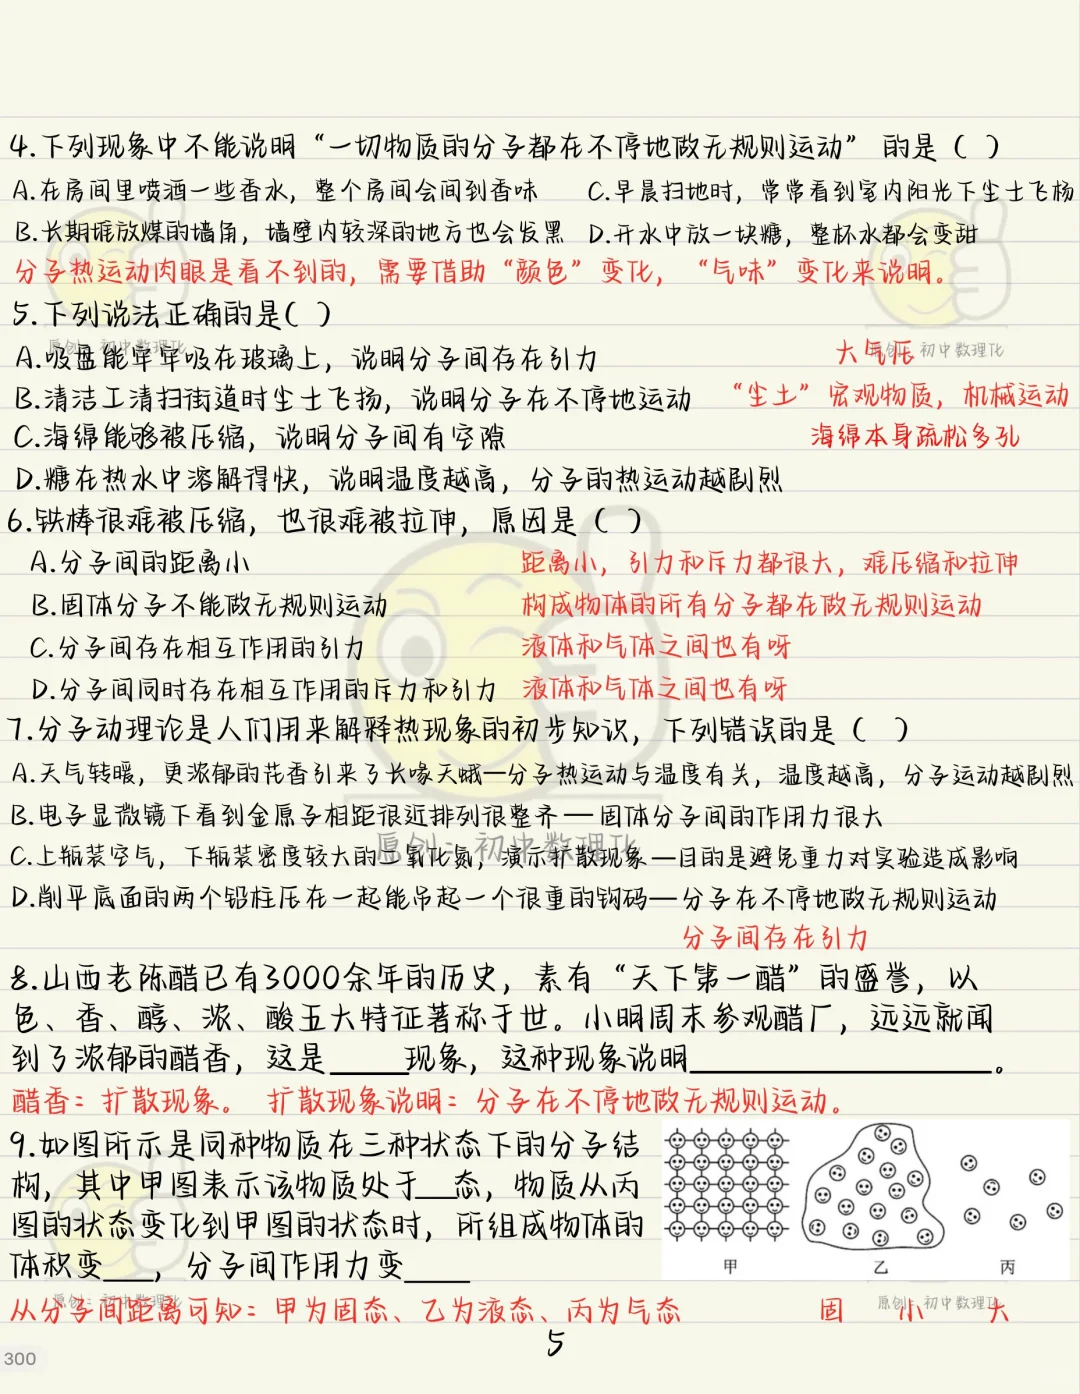 4.下列现象中不能说明“一切物质的分子都在不停地做无规则运动” 的是（ ）
A.在房间里喷洒一些香水，整个房间会闻到香味 C.早晨扫地时，常常看到室内阳光下尘土飞杨
B.长期堆放煤的墙角，墙壁内较深的地方也会发黑 D.开水中放一块糖，整杯水都会变甜
分子热运动肉眼是看不到的，需要借助“颜色”变化，“气味”变化来说明。
5.下列说法正确的是( )
A.吸盘能牢牢吸在玻璃上，说明分子间存在引力 大气压
原创：初中数理化
原创：初中数理化
B.清洁工清扫街道时尘土飞扬，说明分子在不停地运动 “尘土”宏观物质，机械运动
C.海绵能够被压缩，说明分子间有空隙 海绵本身疏松多孔
D.糖在热水中溶解得快，说明温度越高，分子的热运动越剧烈
6.铁棒很难被压缩，也很难被拉伸，原因是（ ）
A.分子间的距离小 距离小，引力和斥力都很大，难压缩和拉伸
B.固体分子不能做无规则运动 构成物体的所有分子都在做无规则运动
C.分子间存在相互作用的引力 液体和气体之间也有呀
D.分子间同时存在相互作用的斥力和引力 液体和气体之间也有呀
7.分子动理论是人们用来解释热现象的初步知识，下列错误的是（ ）
A.天气转暖，更浓郁的花香引来了长喙天蛾—分子热运动与温度有关，温度越高，分子运动越剧烈
B.电子显微镜下看到金原子相距很近排列很整齐—固体分子间的作用力很大
C.上瓶装空气，下瓶装密度较大的二氧化氮，演示扩散现象—目的是避免重力对实验造成影响
原创：初中数理化
D.削平底面的两个铅柱压在一起能吊起一个很重的钩码—分子在不停地做无规则运动
分子间存在引力
8.山西老陈醋已有3000余年的历史，素有“天下第一醋”的盛誉，以
色、香、醇、浓、酸五大特征著称于世。小明周末参观醋厂，远远就闻
到了浓郁的醋香，这是_____现象，这种现象说明___________________。
醋香：扩散现象。 扩散现象说明：分子在不停地做无规则运动。
9.如图所示是同种物质在三种状态下的分子结
构，其中甲图表示该物质处于___态，物质从丙
图的状态变化到甲图的状态时，所组成物体的
体积变___，分子间作用力变____
甲 乙 丙
从分子间距离可知：甲为固态、乙为液态、丙为气态 固 小 大
原创：初中数理化
原创：初中数理化
5
300